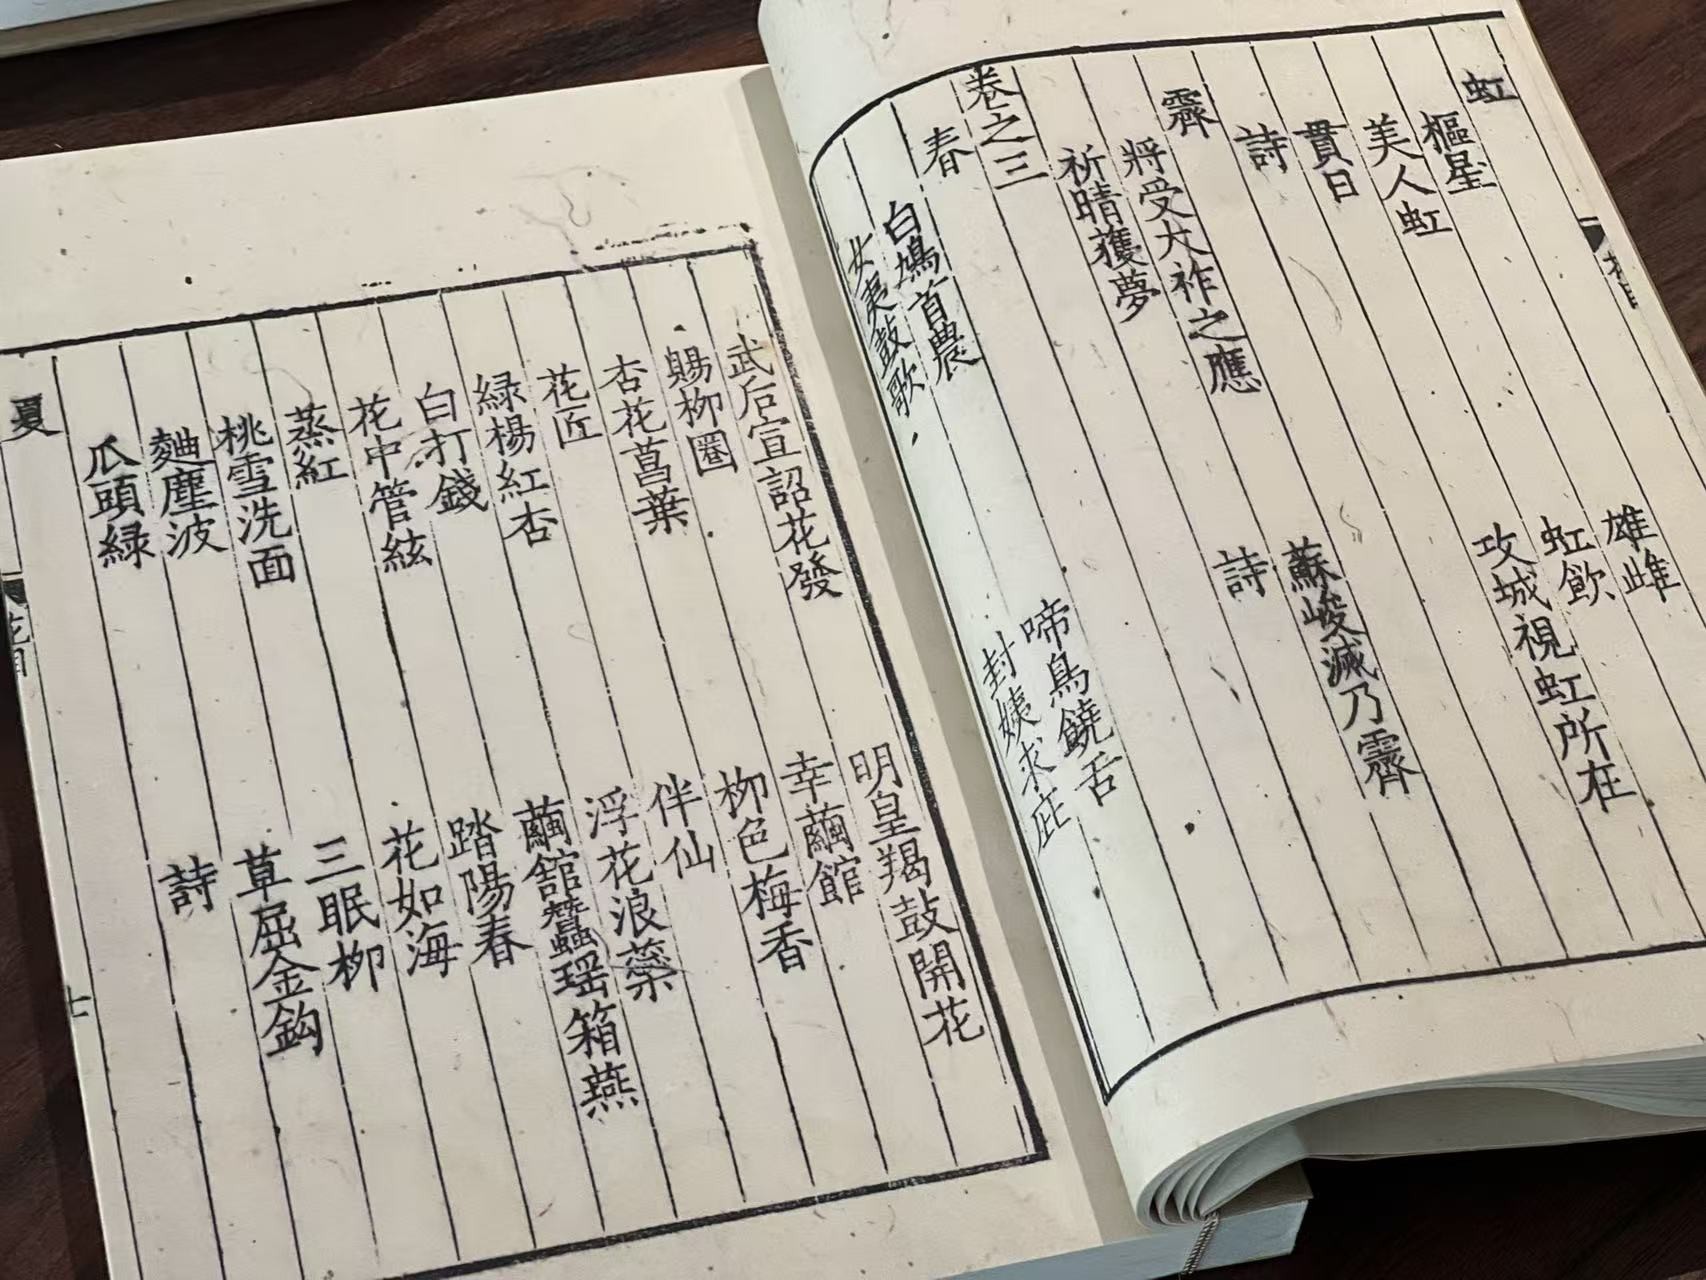 虹
樞星 雄雌
美人虹 虹飲
貫日 攻城視虹所在
詩
霽 蘇峻滅乃霽
將受大祚之應 詩
祈晴獲夢
卷之三
春
白鳩首農 啼鳥饒舌
女夷鼓歌 封姨求庇
武后宣詔花發 明皇羯鼓開花
賜柳圈 幸繭館
杏花菖葉 柳色梅香
花匠 伴仙
綠楊紅杏 浮花浪蘂
白打錢 繭館蠶瑶箱燕
花中管絃 踏陽春
蒸紅 花如海
桃雪洗面 三眠柳
麯塵波 草屈金鈎
瓜頭綠 詩
夏
花目
七